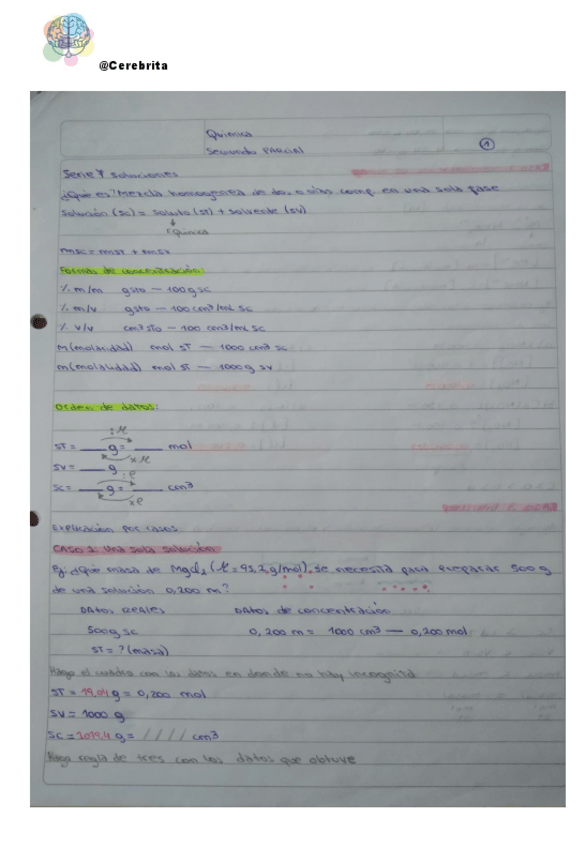 @Cerebrita
Química
Segundo PARCIAL
1
Serie 7 soluciones
¿Qué es? Mezcla homogenea de dos o más comp. en una sola fase
Solución (sc) = soluto (ST) + solvente (SV)
Química
msc = msT + msv
Formas de concentración:
% m/m gsto — 100g sc
% m/v gsto — 100 cm³/mL sc
% v/v cm³ sto — 100 cm³/mL sc
M (molaridad) mol ST — 1000 cm³ sc
m (molalidad) mol ST — 1000 g sv
Orden de datos:
:M
ST = ___ g = ___ mol
xM
SV = ___ g
:ρ
SC = ___ g = ___ cm³
xρ
Explicación por casos
CASO 1: Una sola solución
Ej: ¿Qué masa de MgCl₂ (M = 95,2 g/mol) se necesita para preparar 500 g
de una solución 0,200 m?
DATOS REALES DATOS de concentración
500g sc 0,200 m = 1000 cm³ — 0,200 mol
ST = ? (masa)
Hago el cuadro con los datos en donde no hay incognita
ST = 19,04 g = 0,200 mol
SV = 1000 g
SC = 1019,4 g = //// cm³
Hago regla de tres con los datos que obtuve